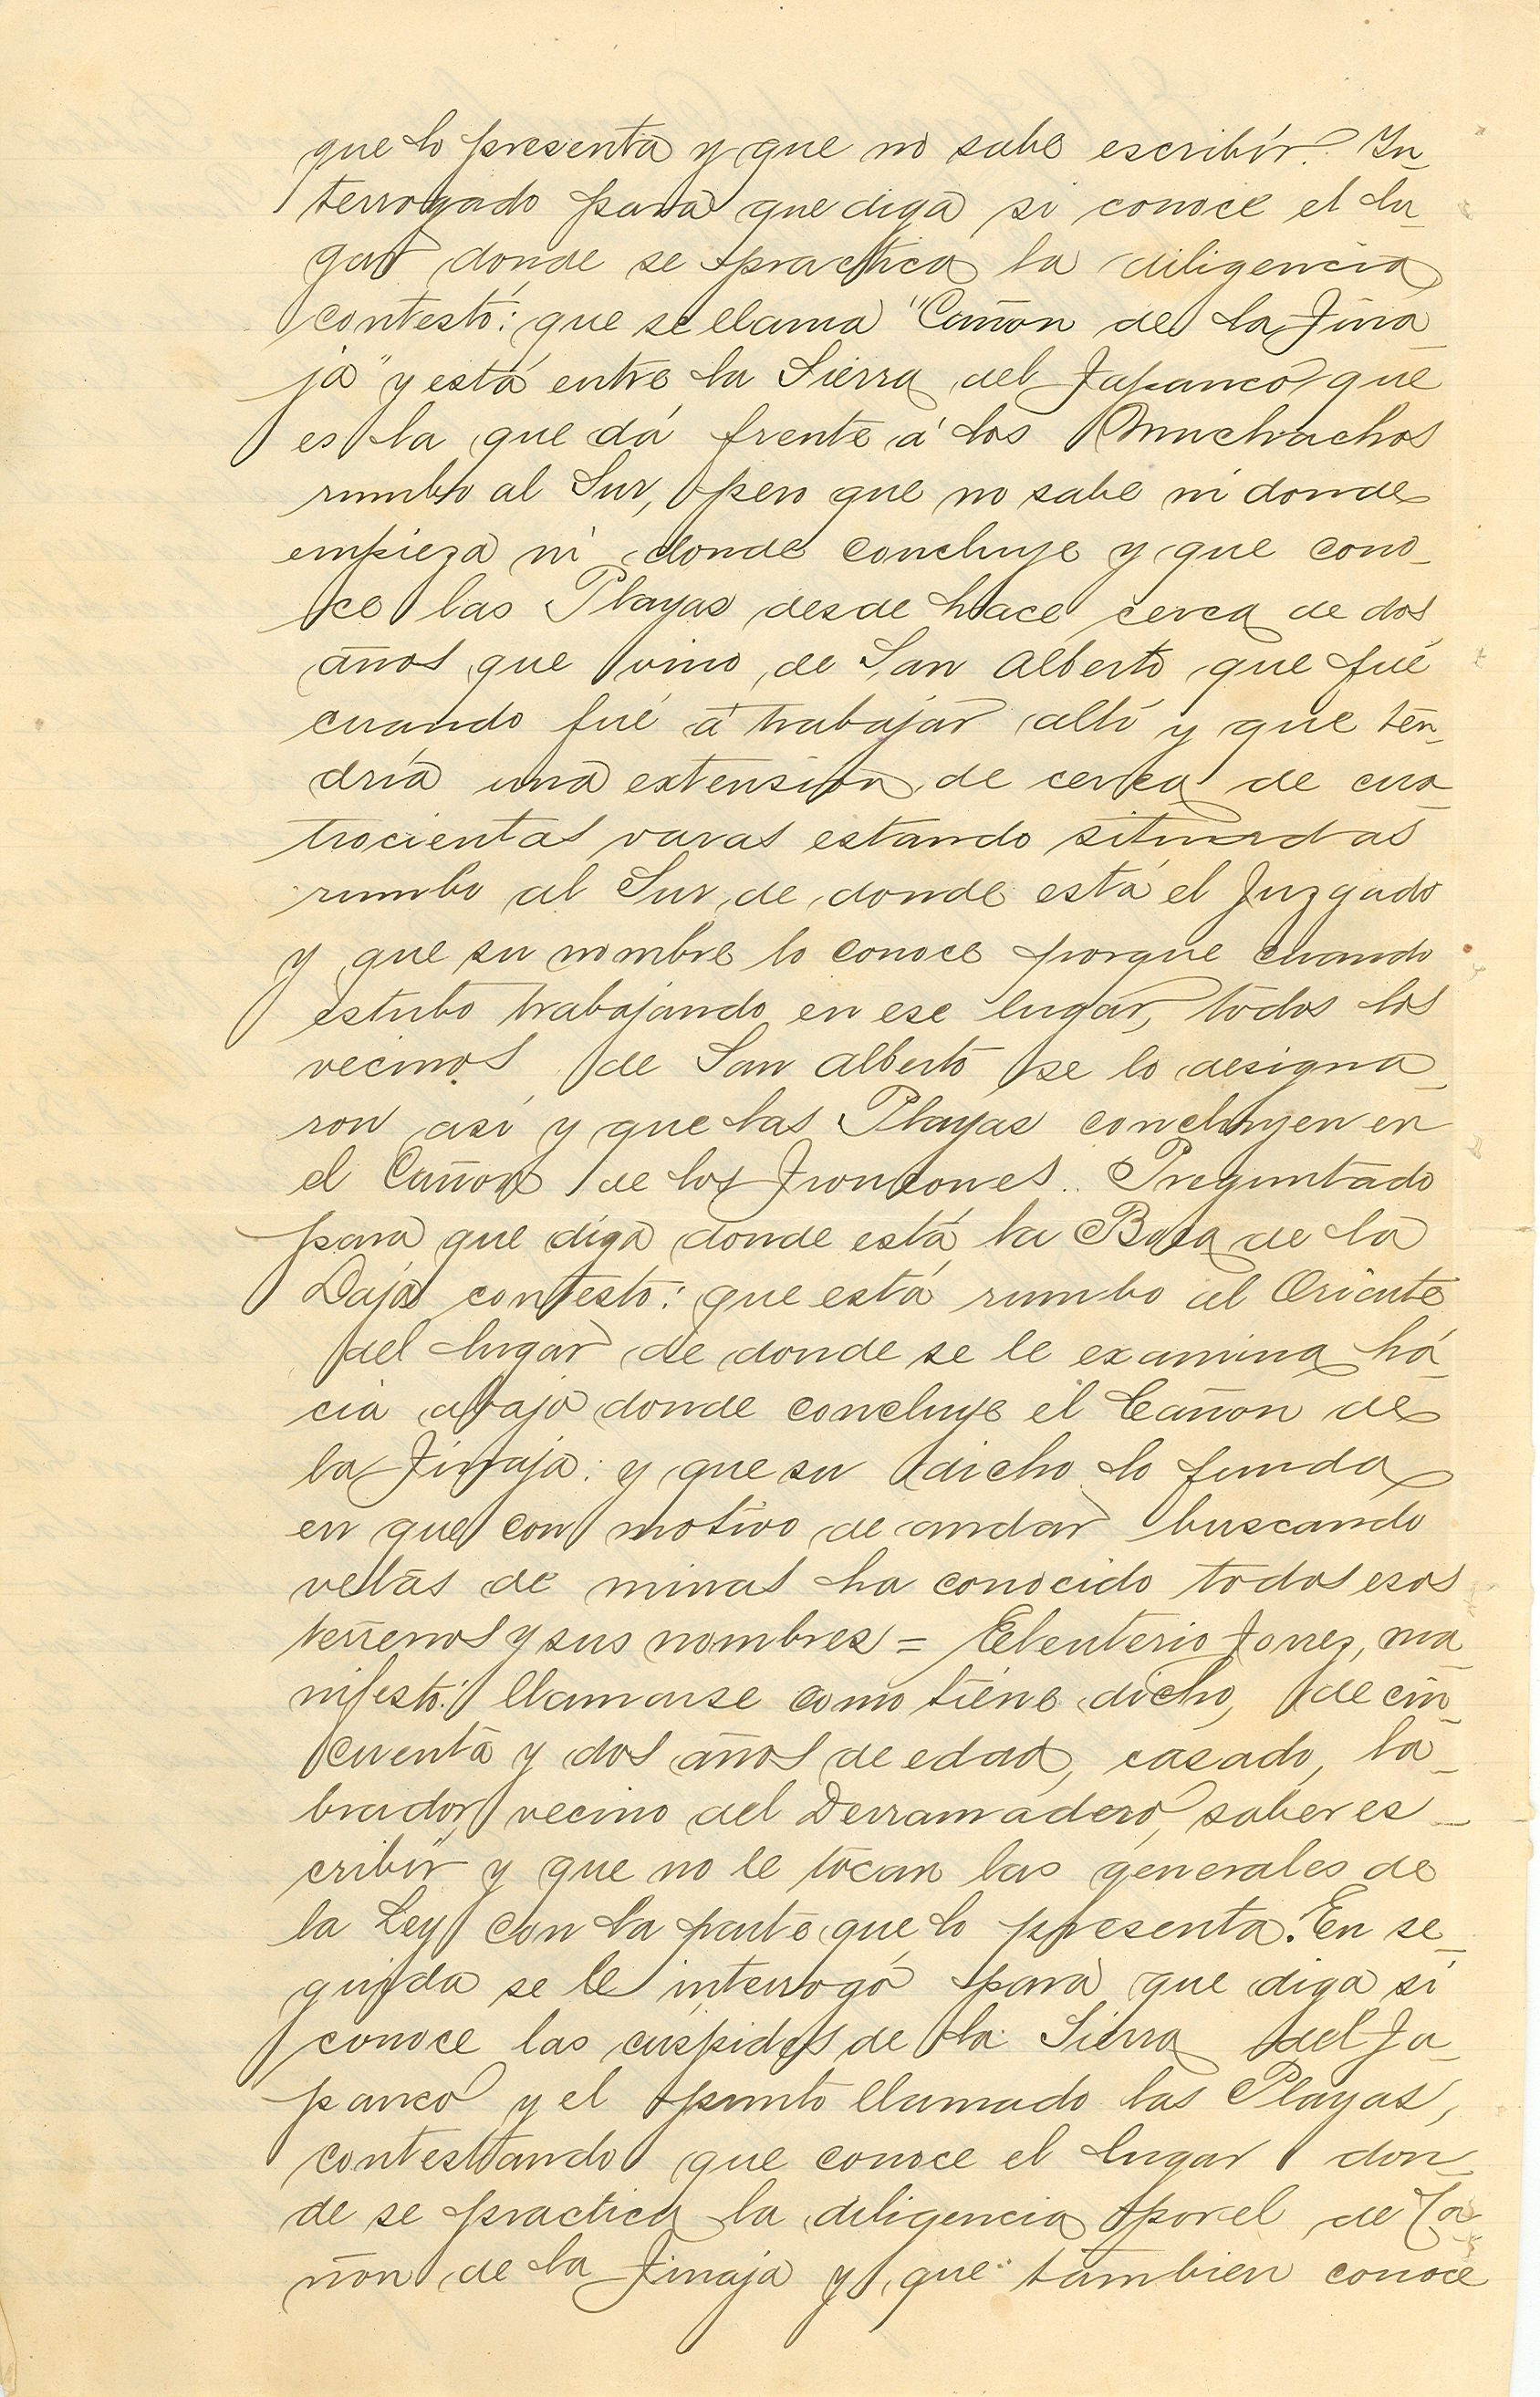 que lo presenta y que no sabe escribir. In_
terrogado para que diga si conoce el lu_
gar donde se practica la diligencia
contestó: que se llama "Cañon de la Tina_
ja" y está entre la Sierra del Japanco que
es la que dá frente á los Muchachos
rumbo al Sur, pero que no sabe ni donde
empieza ni donde concluye y que cono_
ce las Playas desde hace cerca de dos
años que vino de San Alberto que fué
cuando fué á trabajar allí y que ten_
dría una extension de cerca de cua_
trocientas varas estando situadas
rumbo al Sur de donde está el Juzgado
y que su nombre lo conoce porque cuando
estubo trabajando en ese lugar, todos los
vecinos de San Alberto se lo designa_
ron así y que las Playas concluyen en
el Cañon de los Troncones. Preguntado
para que diga donde está la Boca de la
Daja contestó: que está rumbo al Oriente
del lugar de donde se le examina há_
cia abajo donde concluye el Cañon de
la Tinaja: y que su dicho lo funda
en que con motivo de andar buscando
vetas de minas ha conocido todos esos
terrenos y sus nombres = Eleuterio Torrez, ma_
nifestó: llamarse como tiene dicho, de cin_
cuenta y dos años de edad, casado, la_
brador, vecino del Derramadero, saber es_
cribir y que no le tocan las generales de
la Ley con la parte que lo presenta. En se_
guida se le interrogó para que diga si
conoce las cuspides de la Sierra del Ja_
panco y el punto llamado las Playas,
contestando que conoce el lugar don_
de se practica la diligencia por el de Ca_
ñon de la Tinaja y que tambien conoce